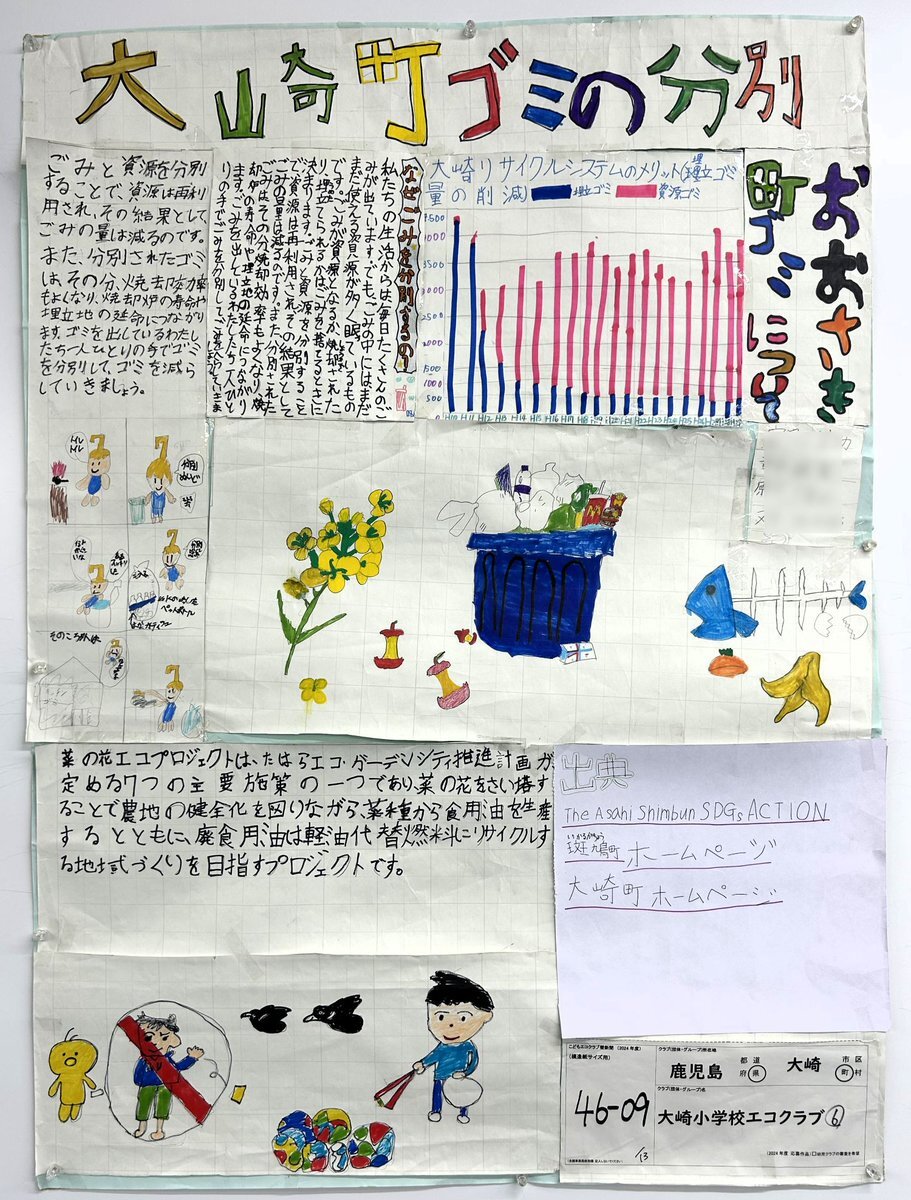 大崎町ゴミの分別
おおさき
町ゴミについて
ごみと資源を分別
することで、資源は再利
用され、その結果として、
ごみの量は減るのです。
また、分別されたゴミ
はその分、焼却効率
もよくなり、焼却炉の寿命や
埋立地の延命につながり
ます。ゴミを出しているわたし
たち一人ひとりの手でゴミ
を分別して、ゴミを減ら
していきましょう。
なぜごみを分別するの
私たちの生活からは毎日たくさんのご
みが出ています。でも、ごみの中にはまだ
まだ使える資源が多く眠っているもの
です。ごみが資源となるか、焼却された
り、埋立てられるかは、ごみを捨てるときに
決まります。ごみと資源を分別すること
で、資源は再利用され、その結果として
ごみの量は減るのです。また、分別された
ごみはその分、焼却効率もよくなり、焼
却炉の寿命や埋立地の延命につながり
ます。ごみを出しているわたしたち一人ひと
りの手でごみを分別して、
大崎リサイクルシステムのメリット(埋立ゴミ
量の削減) 埋立ゴミ 資源ゴミ
3500
3000
2500
1500
1000
500
0
H10 H11 H12 H13 H14 H15 H16 H17 H18
そのころ
菜の花エコプロジェクトは、たはらエコ・ガーデンシティ推進計画が
定める7つの主要施策の一つであり、菜の花をさい培す
ることで農地の健全化を図りながら、菜種から食用油を生産
するとともに、廃食用油は軽油代替燃料にリサイクルす
る地域づくりを目指すプロジェクトです。
出典
The Asahi Shimbun SDGs ACTION
いかるがちょう
斑鳩町ホームページ
大崎町ホームページ
こどもエコクラブ壁新聞 (2024年度)
(模造紙サイズ用)
46-09
/13
クラブ(団体・グループ)所在地
鹿児島 都道府県 大崎 市区町村
クラブ(団体・グループ)名
大崎小学校エコクラブ⑥